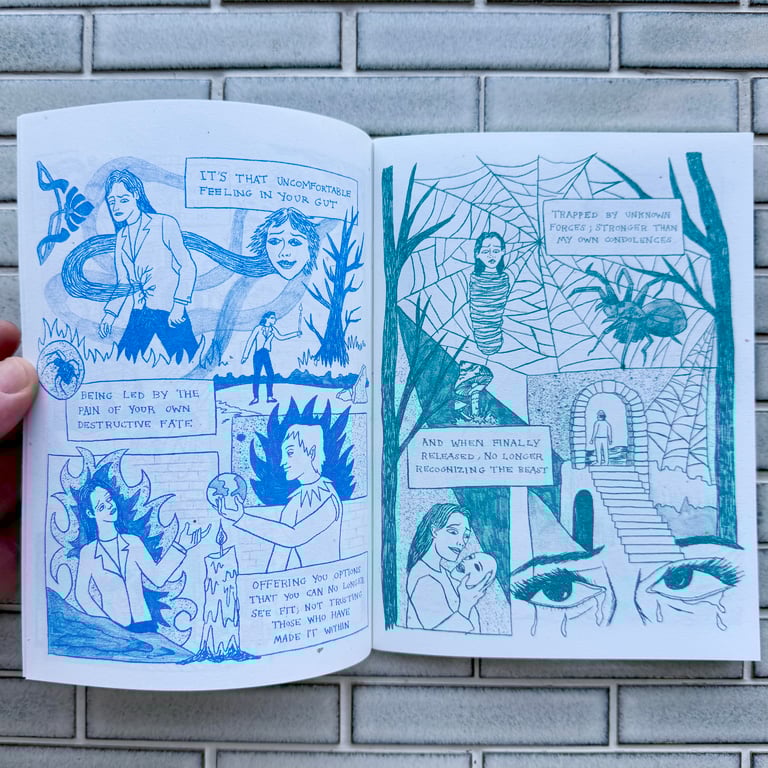 IT'S THAT UNCOMFORTABLE
FEELING IN YOUR GUT
BEING LED BY THE
PAIN OF YOUR OWN
DESTRUCTIVE FATE
OFFERING YOU OPTIONS
THAT YOU CAN NO LONGER
SEE FIT; NOT TRUSTING
THOSE WHO HAVE
MADE IT WITHIN
TRAPPED BY UNKNOWN
FORCES; STRONGER THAN
MY OWN CONDOLENCES
AND WHEN FINALLY
RELEASED, NO LONGER
RECOGNIZING THE BEAST